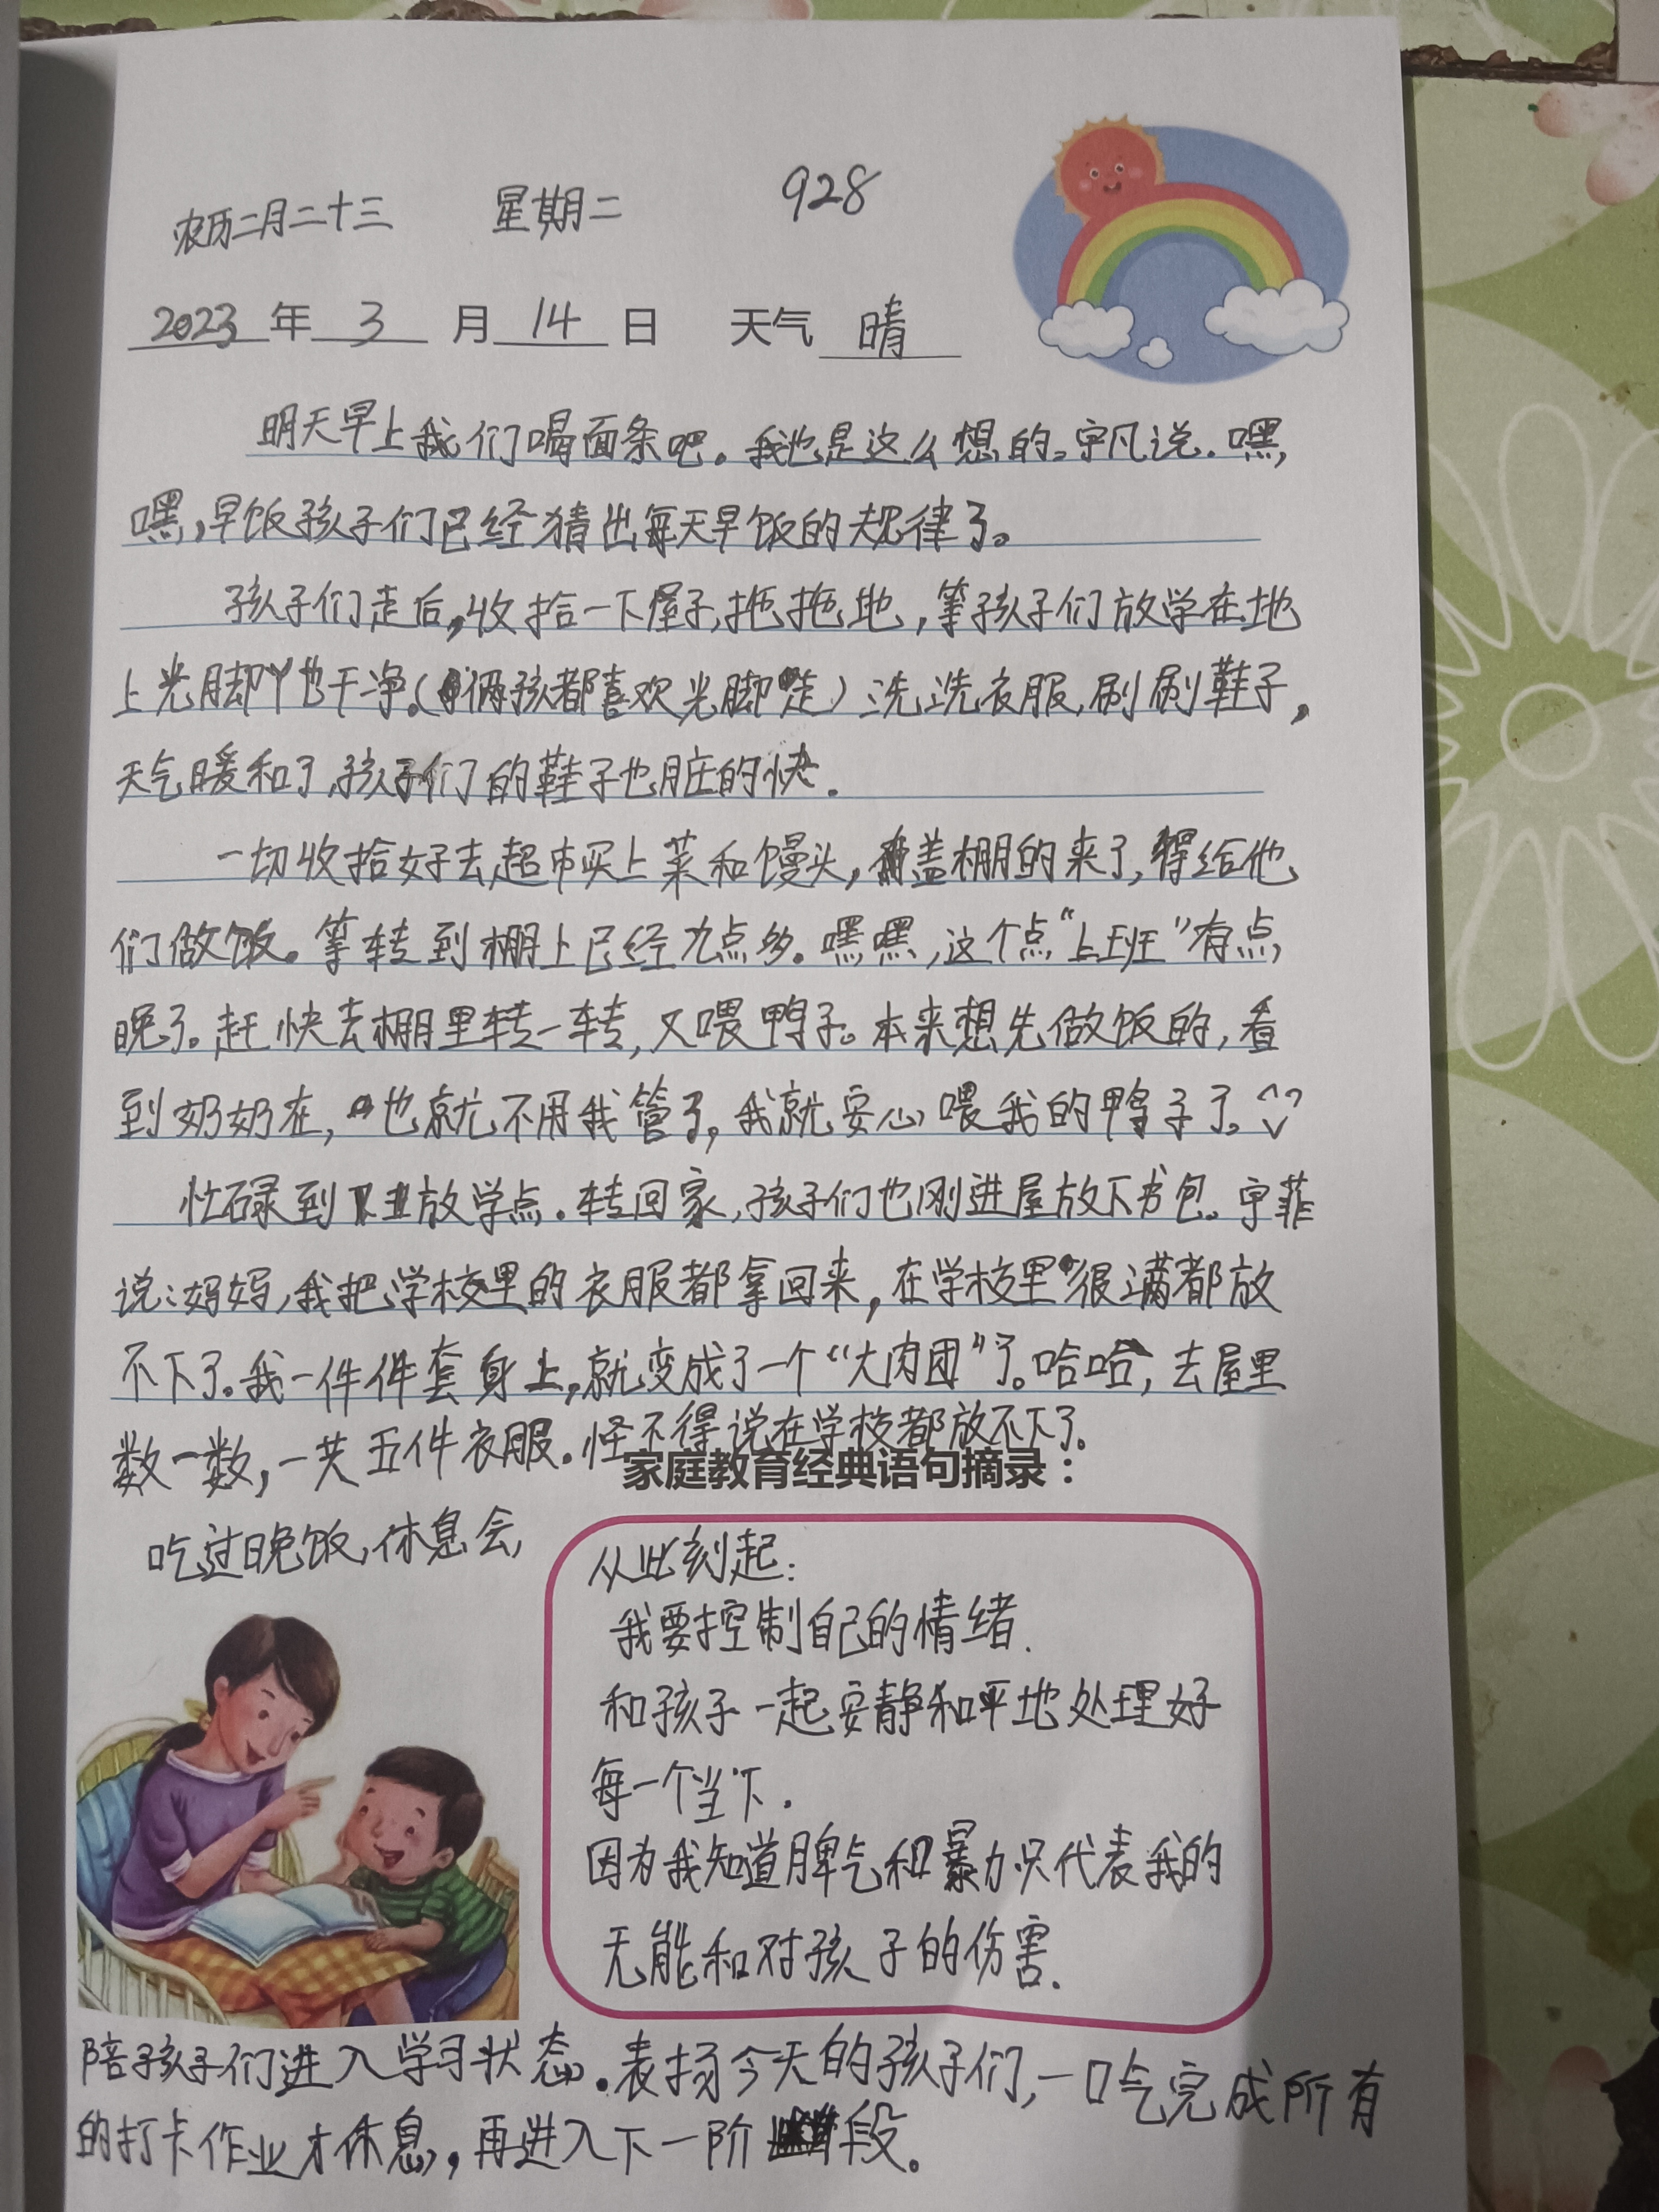 农历二月二十三 星期二 928
2023年3月14日 天气 晴
明天早上我们喝面条吧。我也是这么想的。宇凡说.嘿,
嘿,早饭孩子们已经猜出每天早饭的规律了。
孩子们走后,收拾一下屋子,拖拖地,等孩子们放学在地
上光脚丫也干净.(俩孩都喜欢光脚走)洗洗衣服,刷刷鞋子,
天气暖和了,孩子们的鞋子也脏的快.
一切收拾好去超市买上菜和馒头,盖棚的来了,得给他
们做饭。等转到棚上已经九点多.嘿嘿,这个点“上班”有点
晚了.赶快去棚里转一转,又喂鸭子。本来想先做饭的,看
到奶奶在,也就不用我管了,我就安心喂我的鸭子了。
忙碌到放学点.转回家,孩子们也刚进屋放下书包。宇菲
说:妈妈,我把学校里的衣服都拿回来,在学校里很满都放
不下了.我一件件套身上,就变成了一个“大肉团”了。哈哈,去屋里
数一数,一共五件衣服.怪不得说在学校都放不下了.
家庭教育经典语句摘录:
吃过晚饭,休息会,
从此刻起:
我要控制自己的情绪.
和孩子一起安静和平地处理好
每一个当下.
因为我知道脾气和暴力只代表我的
无能和对孩子的伤害.
陪孩子们进入学习状态.表扬今天的孩子们,一口气完成所有
的打卡作业才休息,再进入下一阶段。